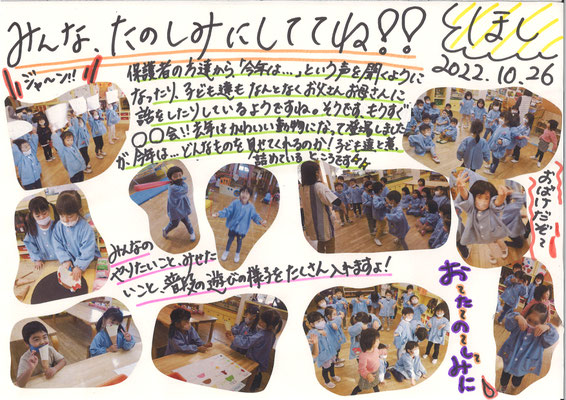 みんな、たのしみにしててね!!
ほし
2022.10.26
ジャ〜ン!!
保護者の方達から「今年は…」という声を聞くように
なったり、子ども達もなんとなくお父さんお母さんに
話をしたりしているようですね。そうです、もうすぐ
〇〇会!!去年はかわいい動物になって登場しました
が、今年は…どんなものを見せてくれるのか!子ども達と煮
詰めているところです
おばけだぞ〜
みんなの
やりたいこと、みせた
いこと、普段の遊びの様子をたくさん入れますよ!
お〜た〜の〜しみに